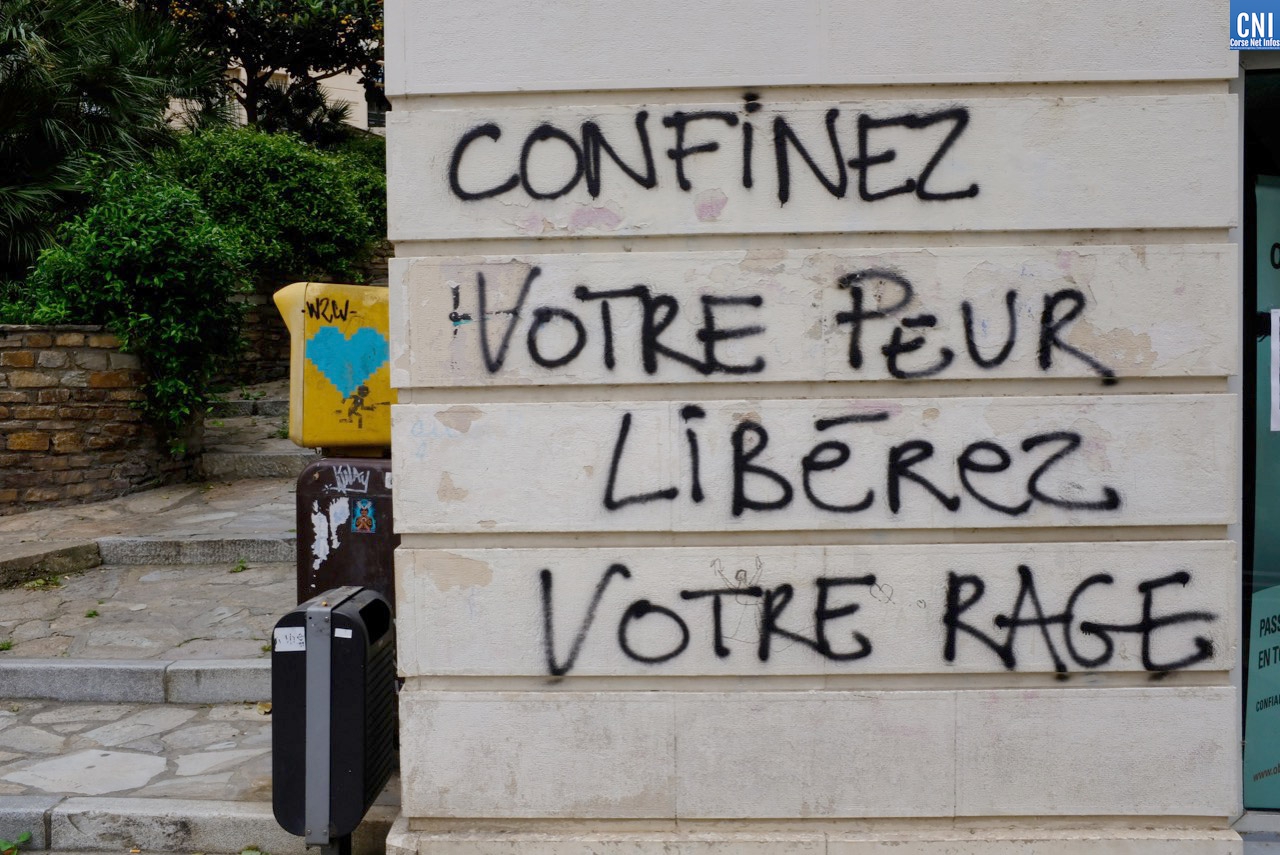 CNI
Corse Net Infos
CONFINEZ
VOTRE PEUR
LIBÉREZ
VOTRE RAGE
-WZW-
PASS
EN T
CONFIA